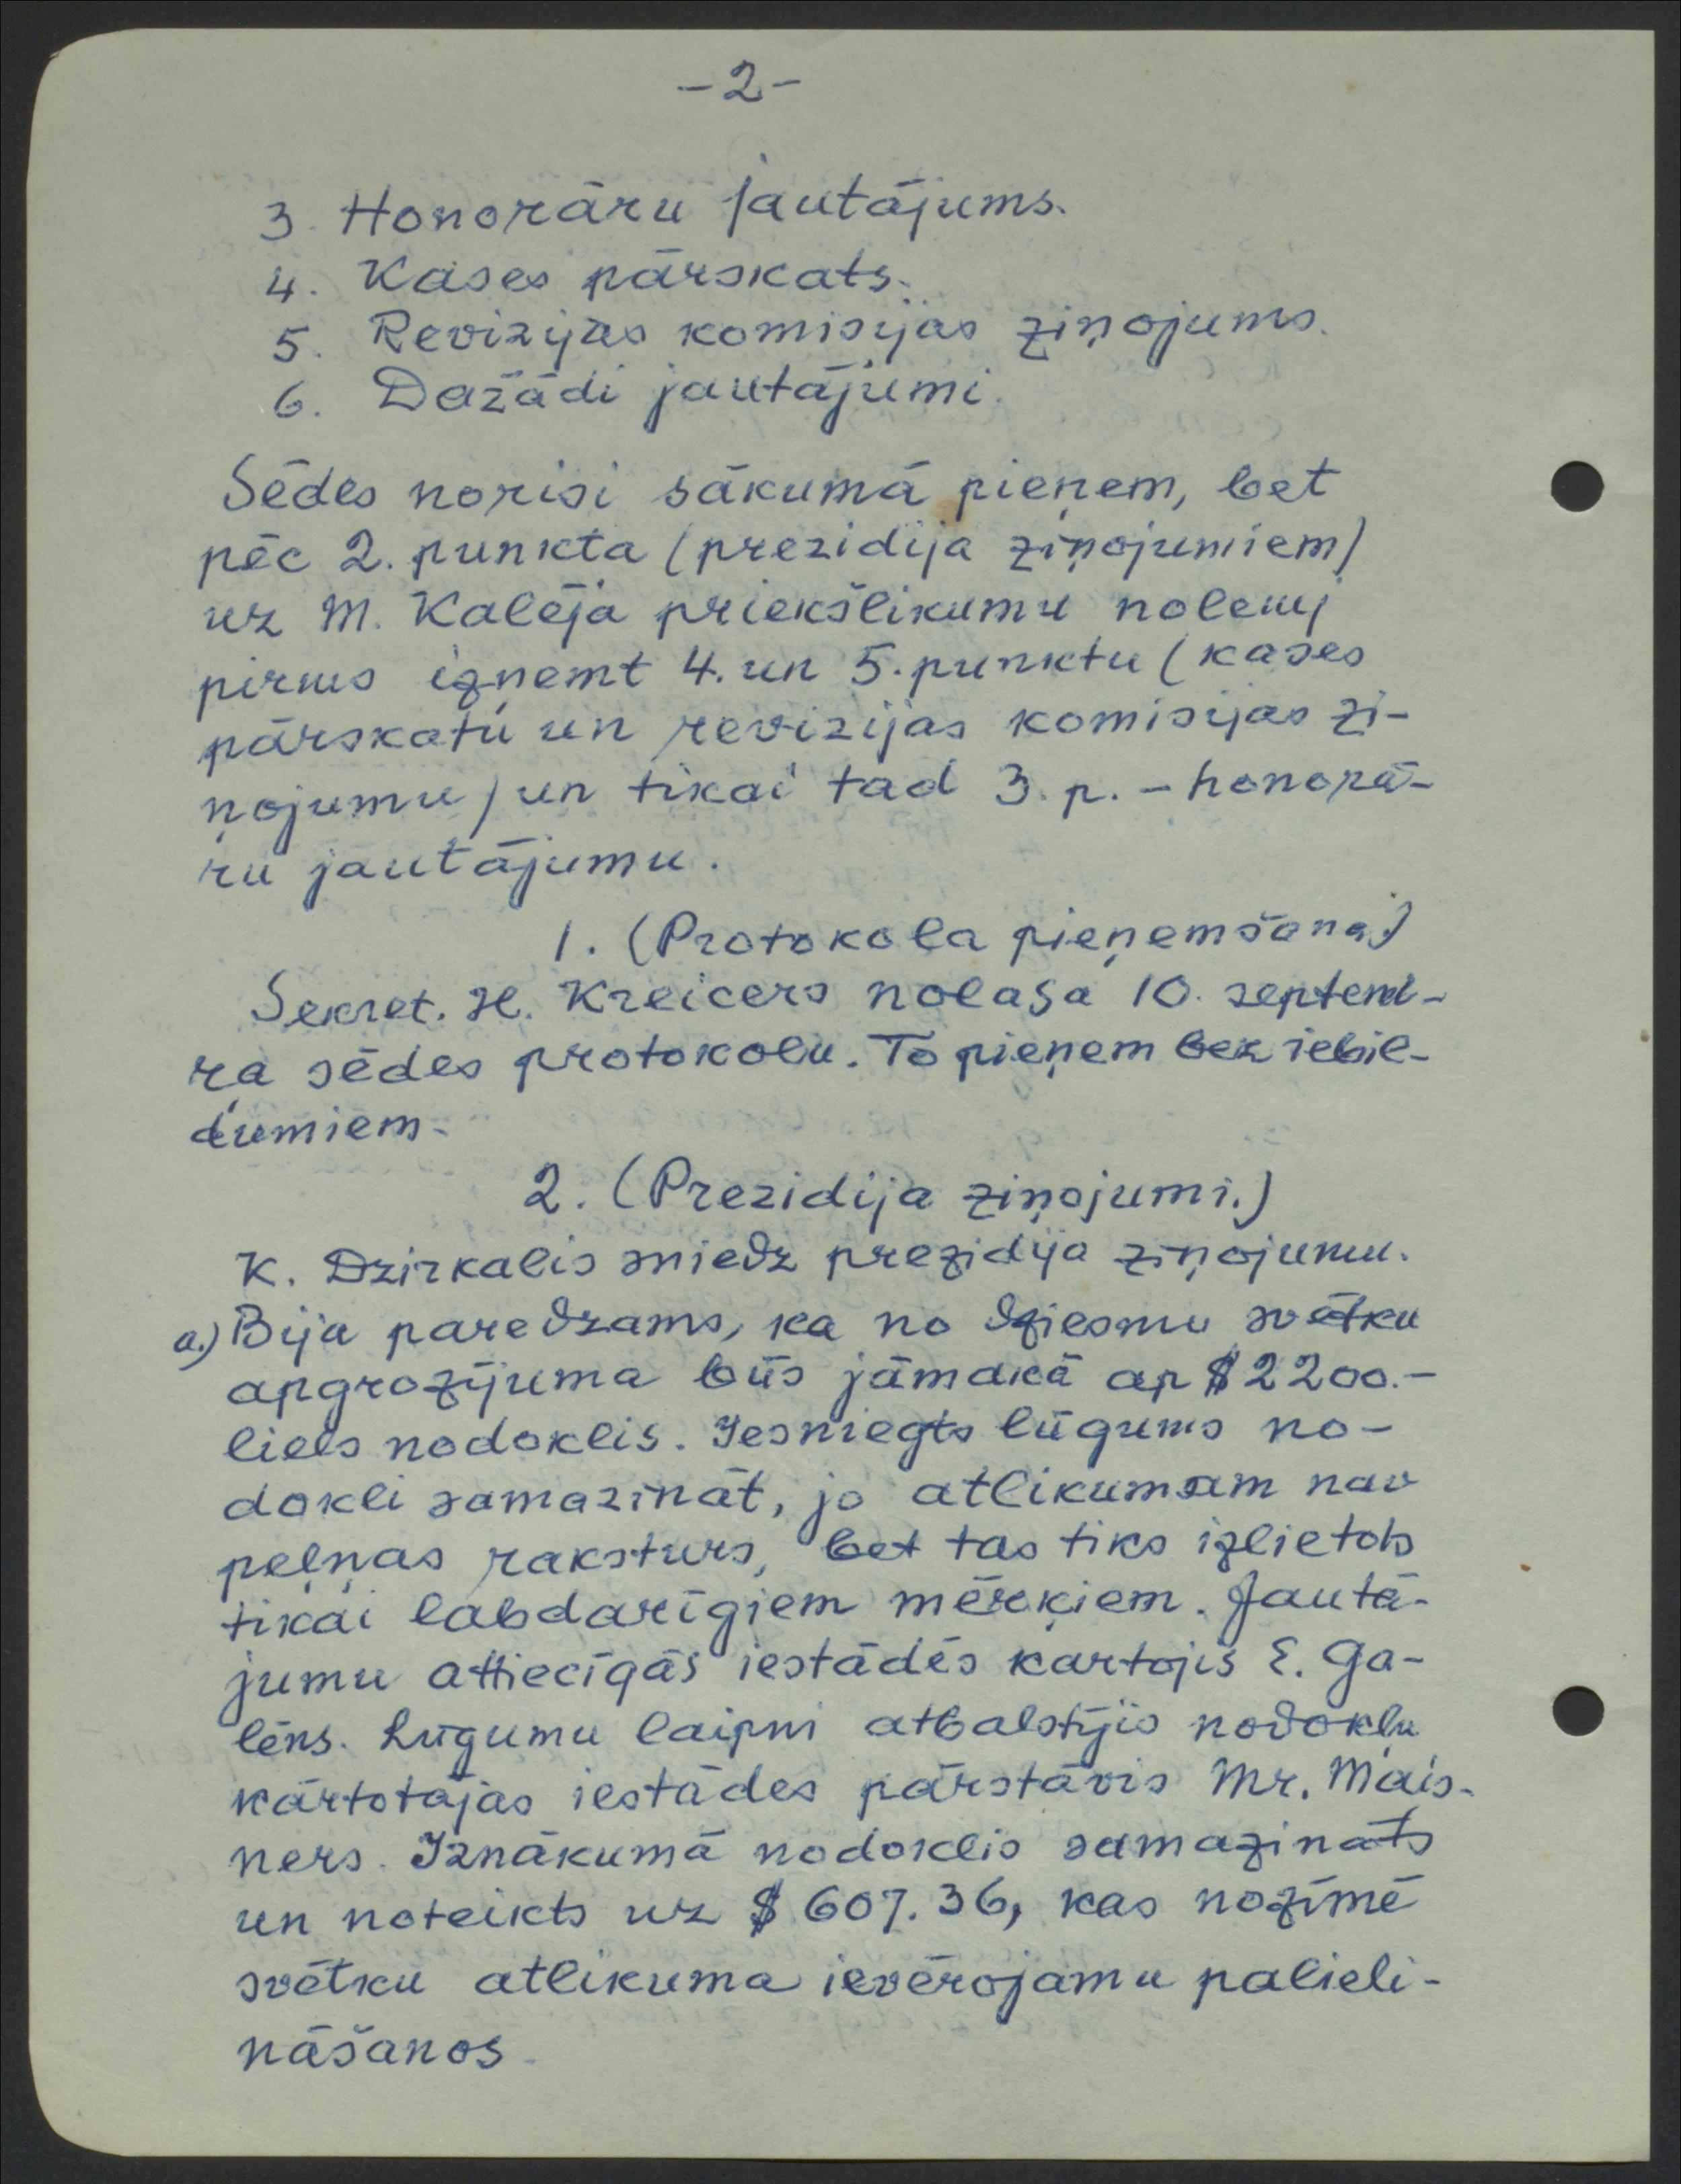 -2-
3. Honorāru jautājums.
4. Kases pārskats.
5. Revizijas komisijas ziņojums.
6. Dažādi jautājumi.
Sēdes norisi sākumā pieņem, bet
pēc 2. punkta (prezidija ziņojumiem)
uz M. Kalēja priekšlikumu nolemj
pirms izņemt 4. un 5. punktu (kases
pārskatu un revizijas komisijas zi-
ņojumu) un tikai tad 3. p. - honorā-
ru jautājumu.
1. (Protokola pieņemšana.)
Sekret. H. Kreicers nolasa 10. septem-
ŗa sēdes protokolu. To pieņem bez iebil-
dumiem.
2. (Prezidija ziņojumi.)
K. Dzirkalis sniedz prezidija ziņojumu.
a.) Bija paredzams, ka no dziesmu svētku
apgrozījuma būs jāmaksā ap $2200.-
liels nodoklis. Iesniegts lūgums no-
dokli samazināt, jo atlikumam nav
peļņas raksturs, bet tas tiks izlietots
tikai labdarīgiem mērķiem. Jautā-
jumu attiecīgās iestādēs kārtojis E. Ga-
lēns. Lūgumu laipni atbalstījis nodokļu
kārtotājas iestādes pārstāvis Mr. Mais-
ners. Iznākumā nodoklis samazināts
un noteikts uz $ 607.36, kas nozīmē
svētku atlikuma ievērojamu palieli-
nāšanos.